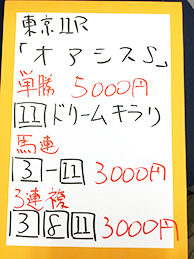 東京11R
「オアシスS」
単勝 5000円
11 ドリームキラリ
馬連
3-11 3000円
3連複
3 8 11 3000円